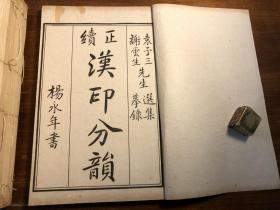 袁子三先生選集
謝雲生摹錄
正續
漢印分韻
楊水年書